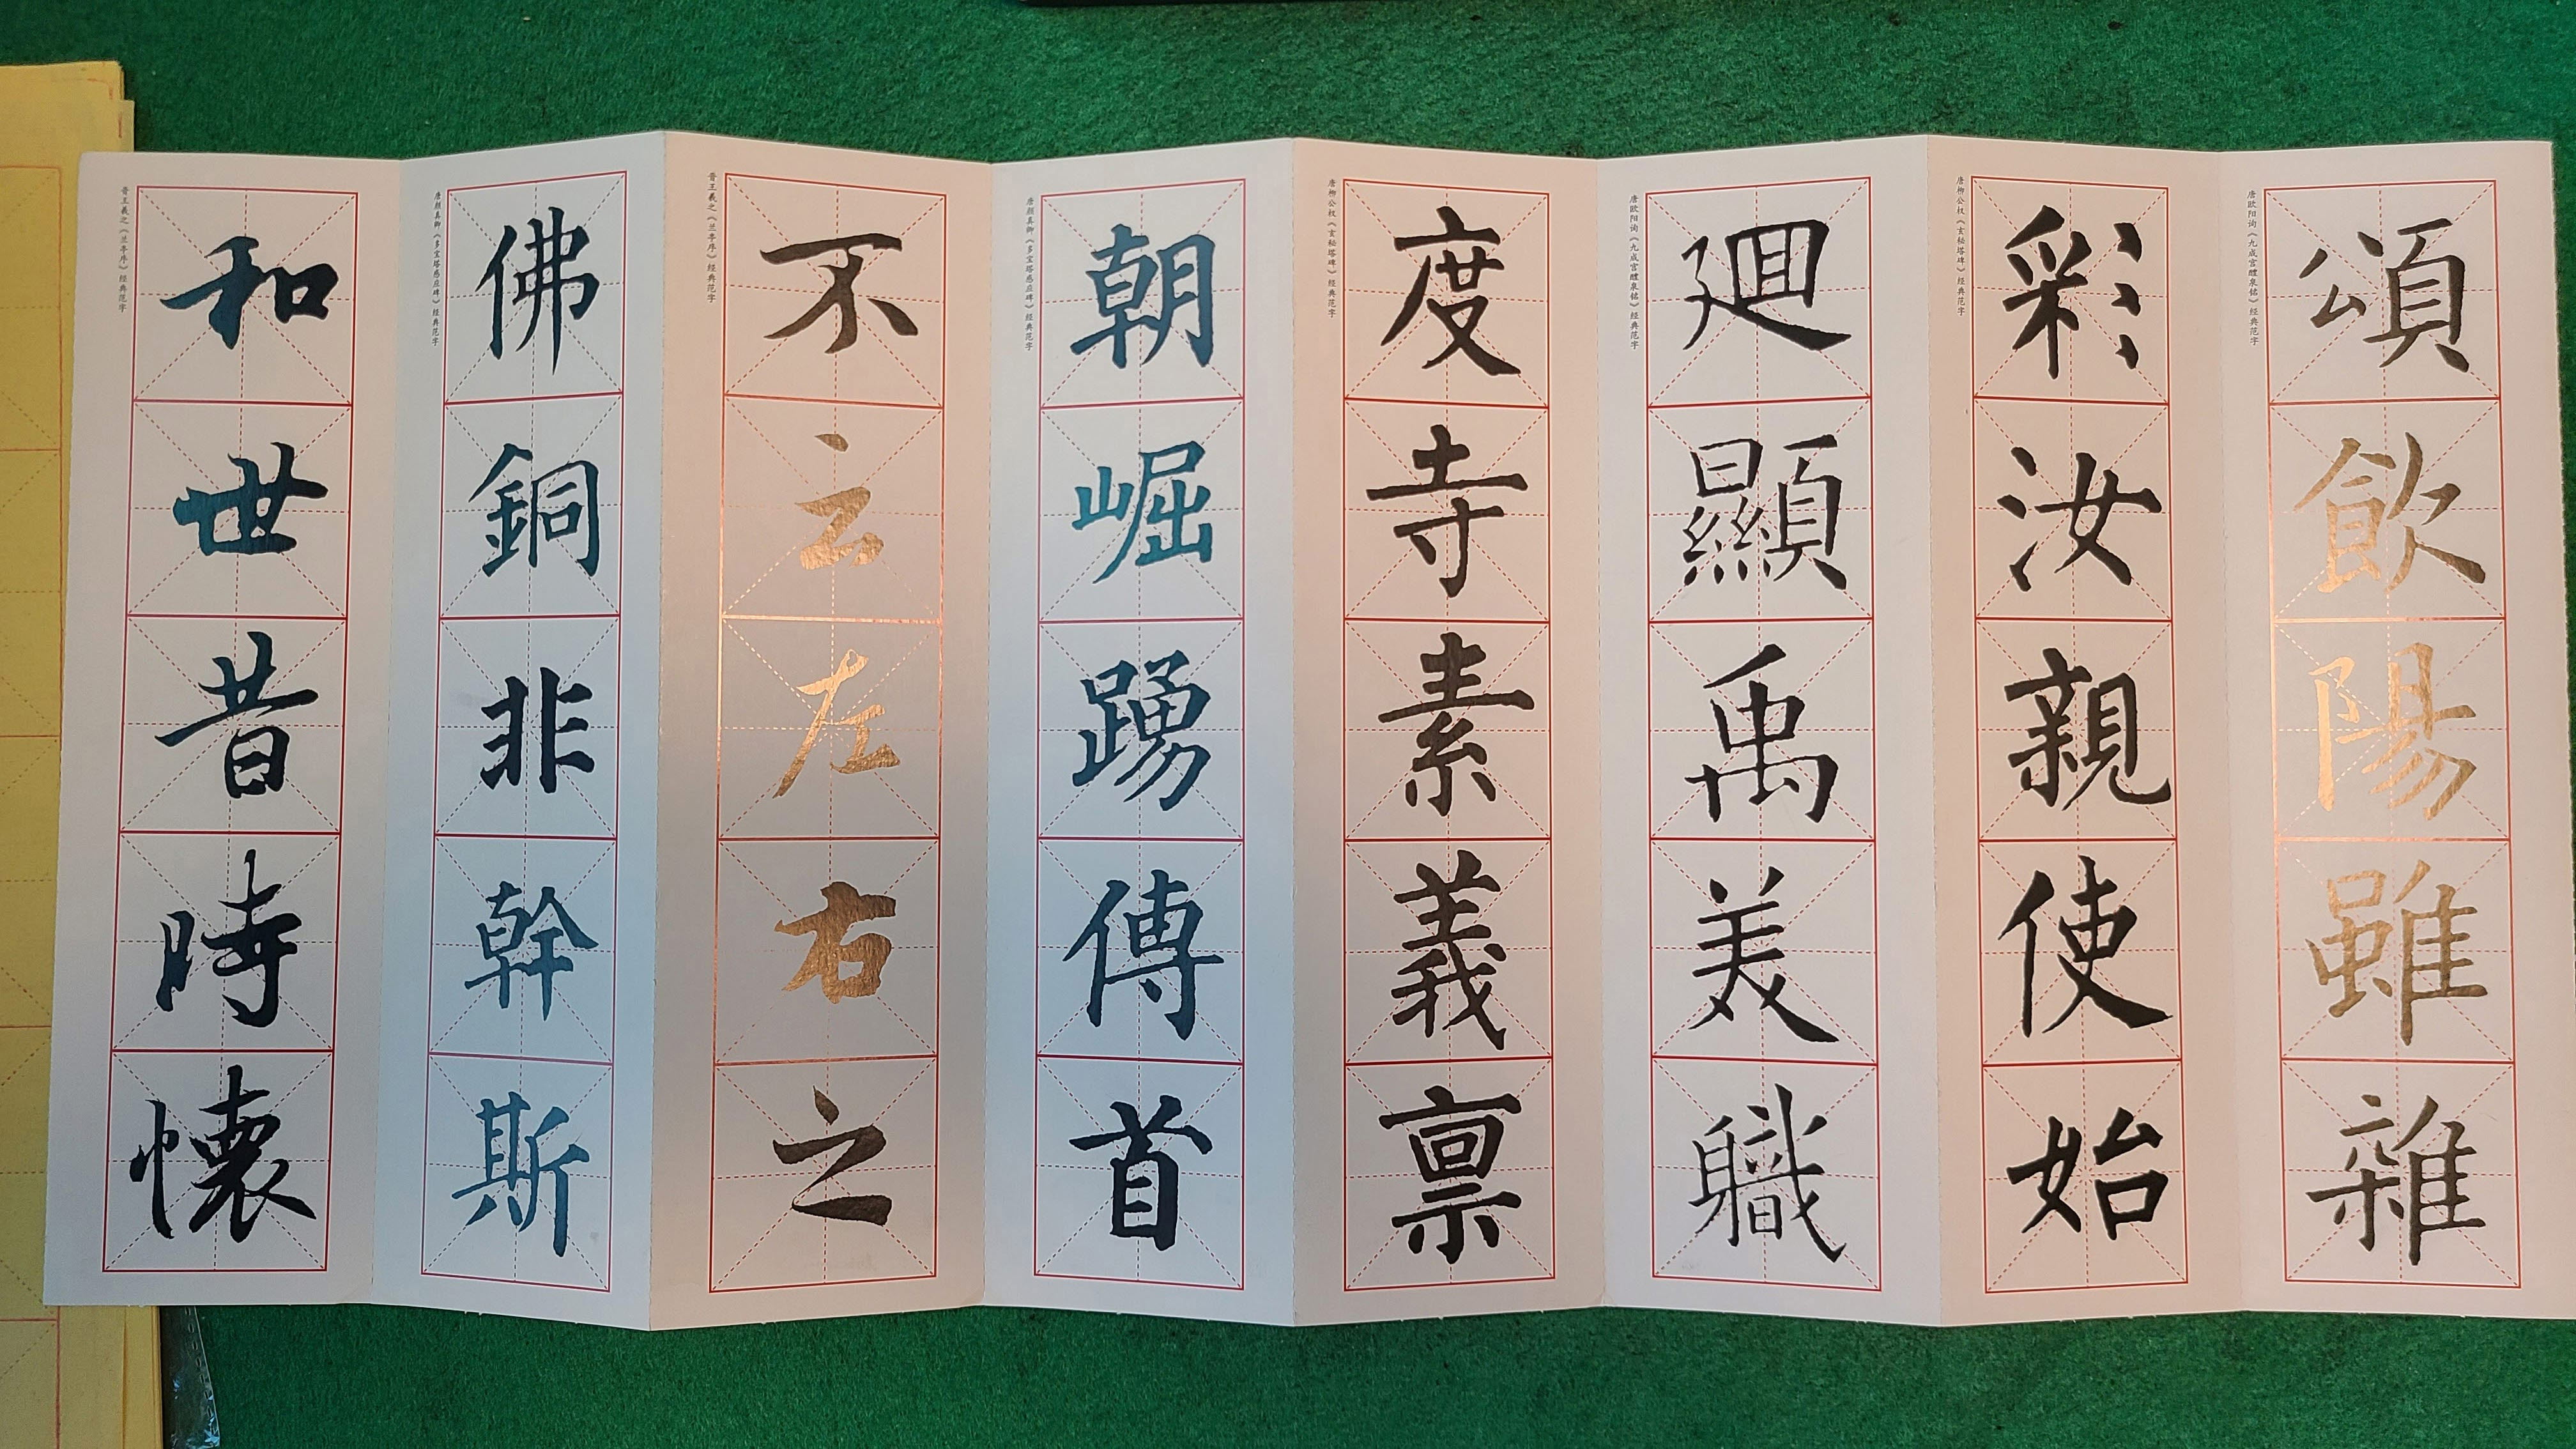 頌飲陽雖雜
唐欧阳询《九成宫醴泉铭》经典范字
彩汝親使始
唐柳公权《玄秘塔碑》经典范字
廻顯禹美軄
唐欧阳询《九成宫醴泉铭》经典范字
度寺素義禀
唐柳公权《玄秘塔碑》经典范字
朝崛踴傳首
唐颜真卿《多宝塔感应碑》经典范字
不云左右之
晋王羲之《兰亭序》经典范字
佛銅非幹斯
唐颜真卿《多宝塔感应碑》经典范字
和世昔時懷
晋王羲之《兰亭序》经典范字